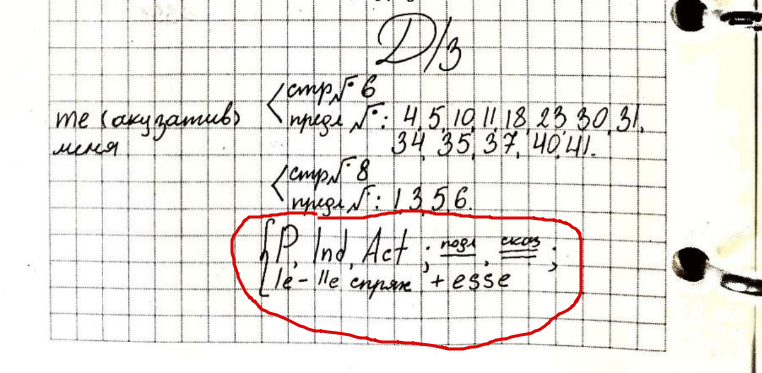 Д/з
стр № 6
me (акузатив) предл №: 4, 5, 10, 11, 18, 23, 30, 31,
меня 34, 35, 37, 40, 41.
стр № 8
предл №: 1, 3, 5, 6.
P, Ind, Act; подл, сказ;
Ie - IIe спряж + esse